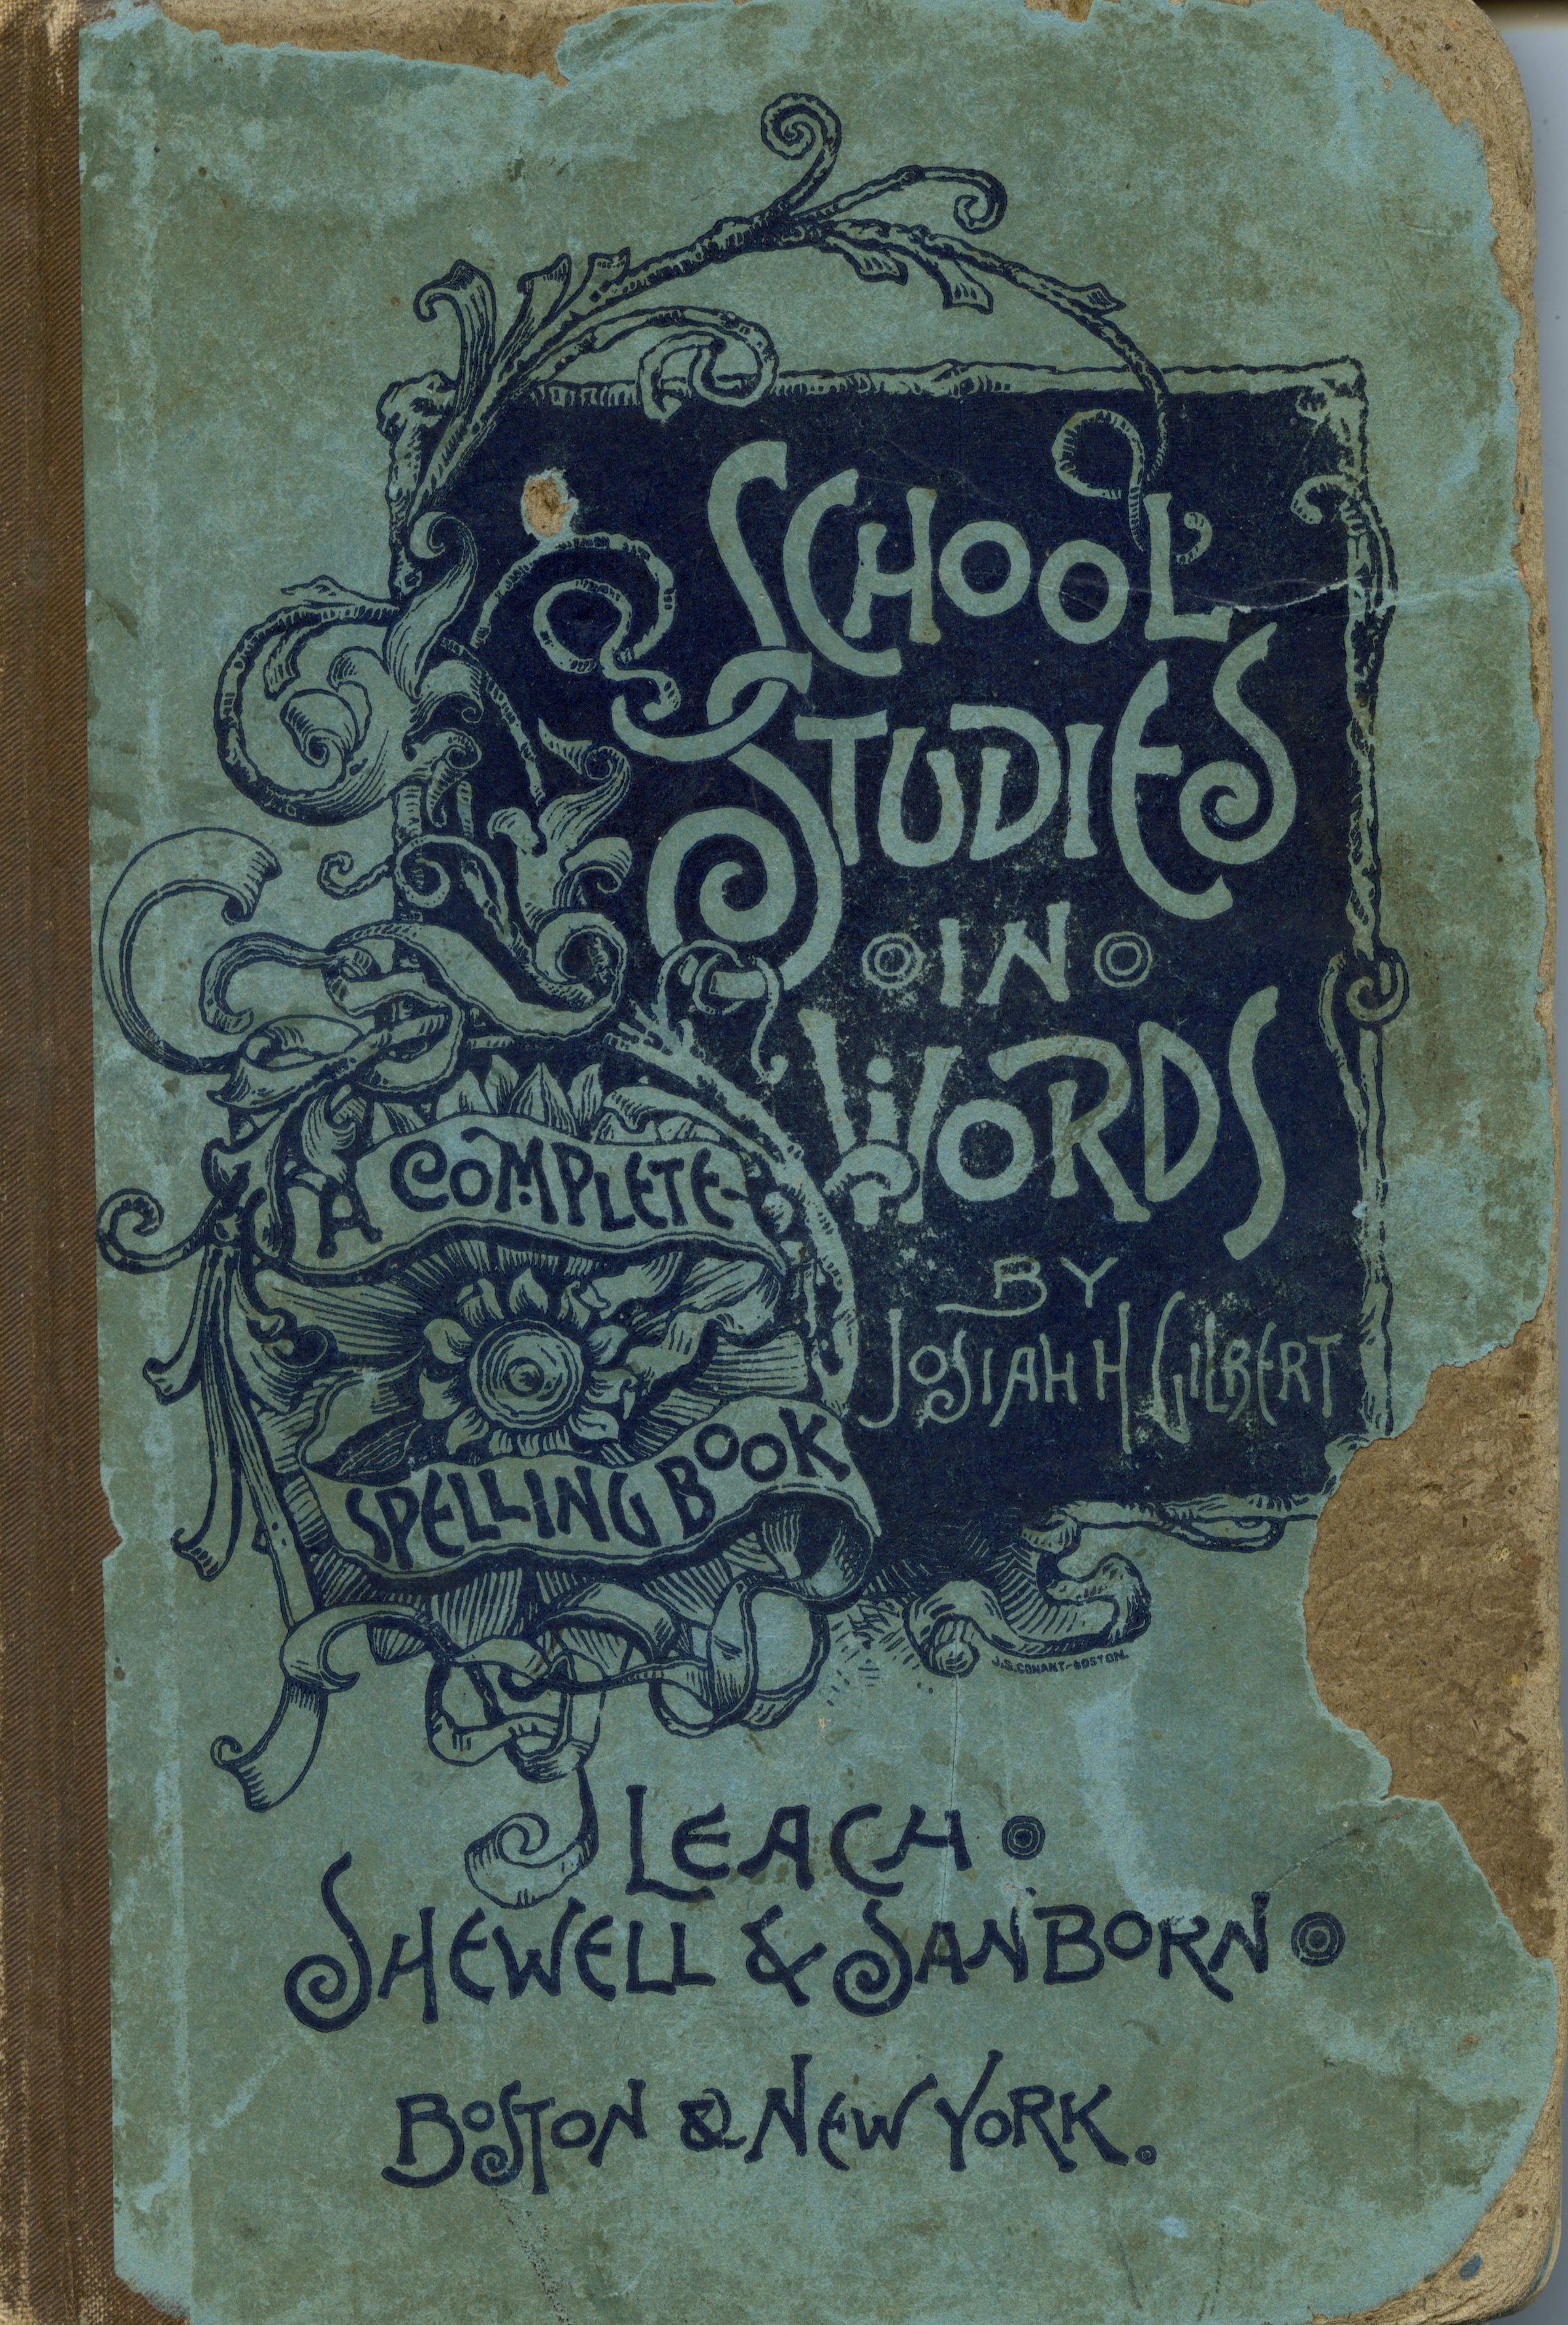 SCHOOL
STUDIES
IN
WORDS
BY
JOSIAH H GILBERT
A COMPLETE
SPELLING BOOK
J.S. CONANT-BOSTON.
LEACH
SHEWELL & SANBORN
BOSTON & NEW YORK.